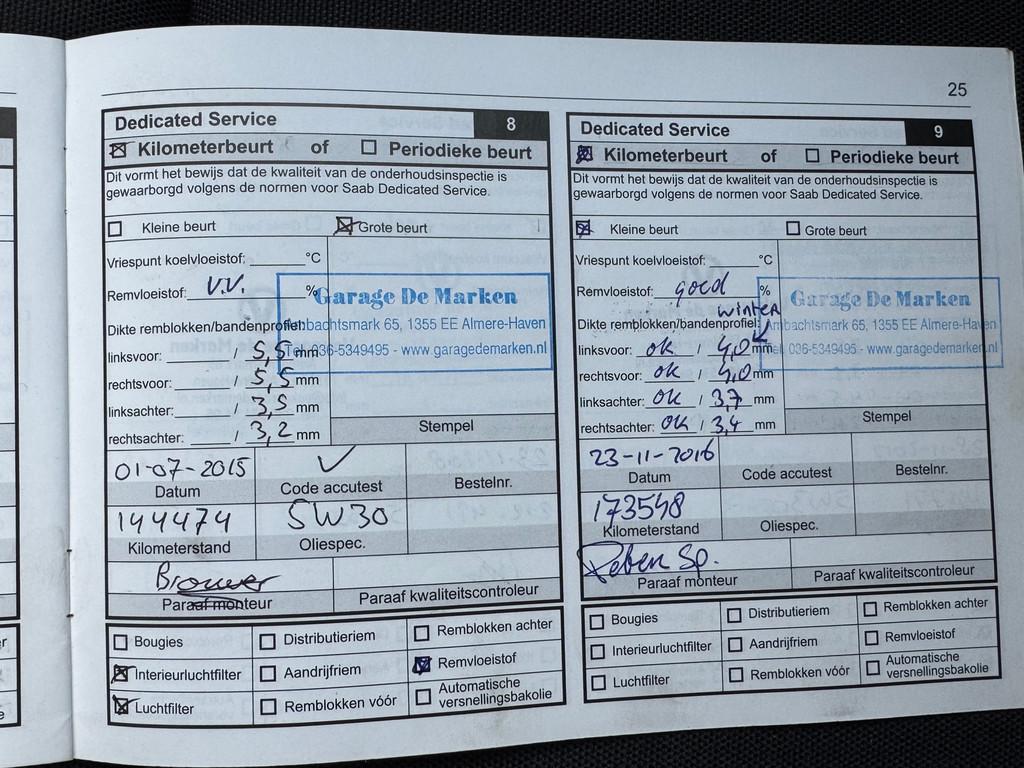 25
Dedicated Service 8
Kilometerbeurt of Periodieke beurt
Dit vormt het bewijs dat de kwaliteit van de onderhoudsinspectie is
gewaarborgd volgens de normen voor Saab Dedicated Service.
Kleine beurt Grote beurt
Vriespunt koelvloeistof: °C
Remvloeistof: V.V. %
Dikte remblokken/bandenprofiel:
linksvoor: / 5,5 mm
rechtsvoor: / 5,5 mm
linksachter: / 3,5 mm
rechtsachter: / 3,2 mm
Garage De Marken
Ambachtsmark 65, 1355 EE Almere-Haven
Tel. 036-5349495 - www.garagedemarken.nl
Stempel
01-07-2015
Datum Code accutest Bestelnr.
144474 5W30
Kilometerstand Oliespec.
Brouwer
Paraaf monteur Paraaf kwaliteitscontroleur
Bougies Distributieriem Remblokken achter
Interieurluchtfilter Aandrijfriem Remvloeistof
Luchtfilter Remblokken vóór Automatische
versnellingsbakolie
Dedicated Service 9
Kilometerbeurt of Periodieke beurt
Dit vormt het bewijs dat de kwaliteit van de onderhoudsinspectie is
gewaarborgd volgens de normen voor Saab Dedicated Service.
Kleine beurt Grote beurt
Vriespunt koelvloeistof: °C
Remvloeistof: goed %
winter
Dikte remblokken/bandenprofiel:
linksvoor: ok / 4,0 mm
rechtsvoor: ok / 4,0 mm
linksachter: ok / 3,7 mm
rechtsachter: ok / 3,4 mm
Garage De Marken
Ambachtsmark 65, 1355 EE Almere-Haven
Tel. 036-5349495 - www.garagedemarken.nl
Stempel
23-11-2016
Datum Code accutest Bestelnr.
173548
Kilometerstand Oliespec.
Sp.
Paraaf monteur Paraaf kwaliteitscontroleur
Bougies Distributieriem Remblokken achter
Interieurluchtfilter Aandrijfriem Remvloeistof
Luchtfilter Remblokken vóór Automatische
versnellingsbakolie